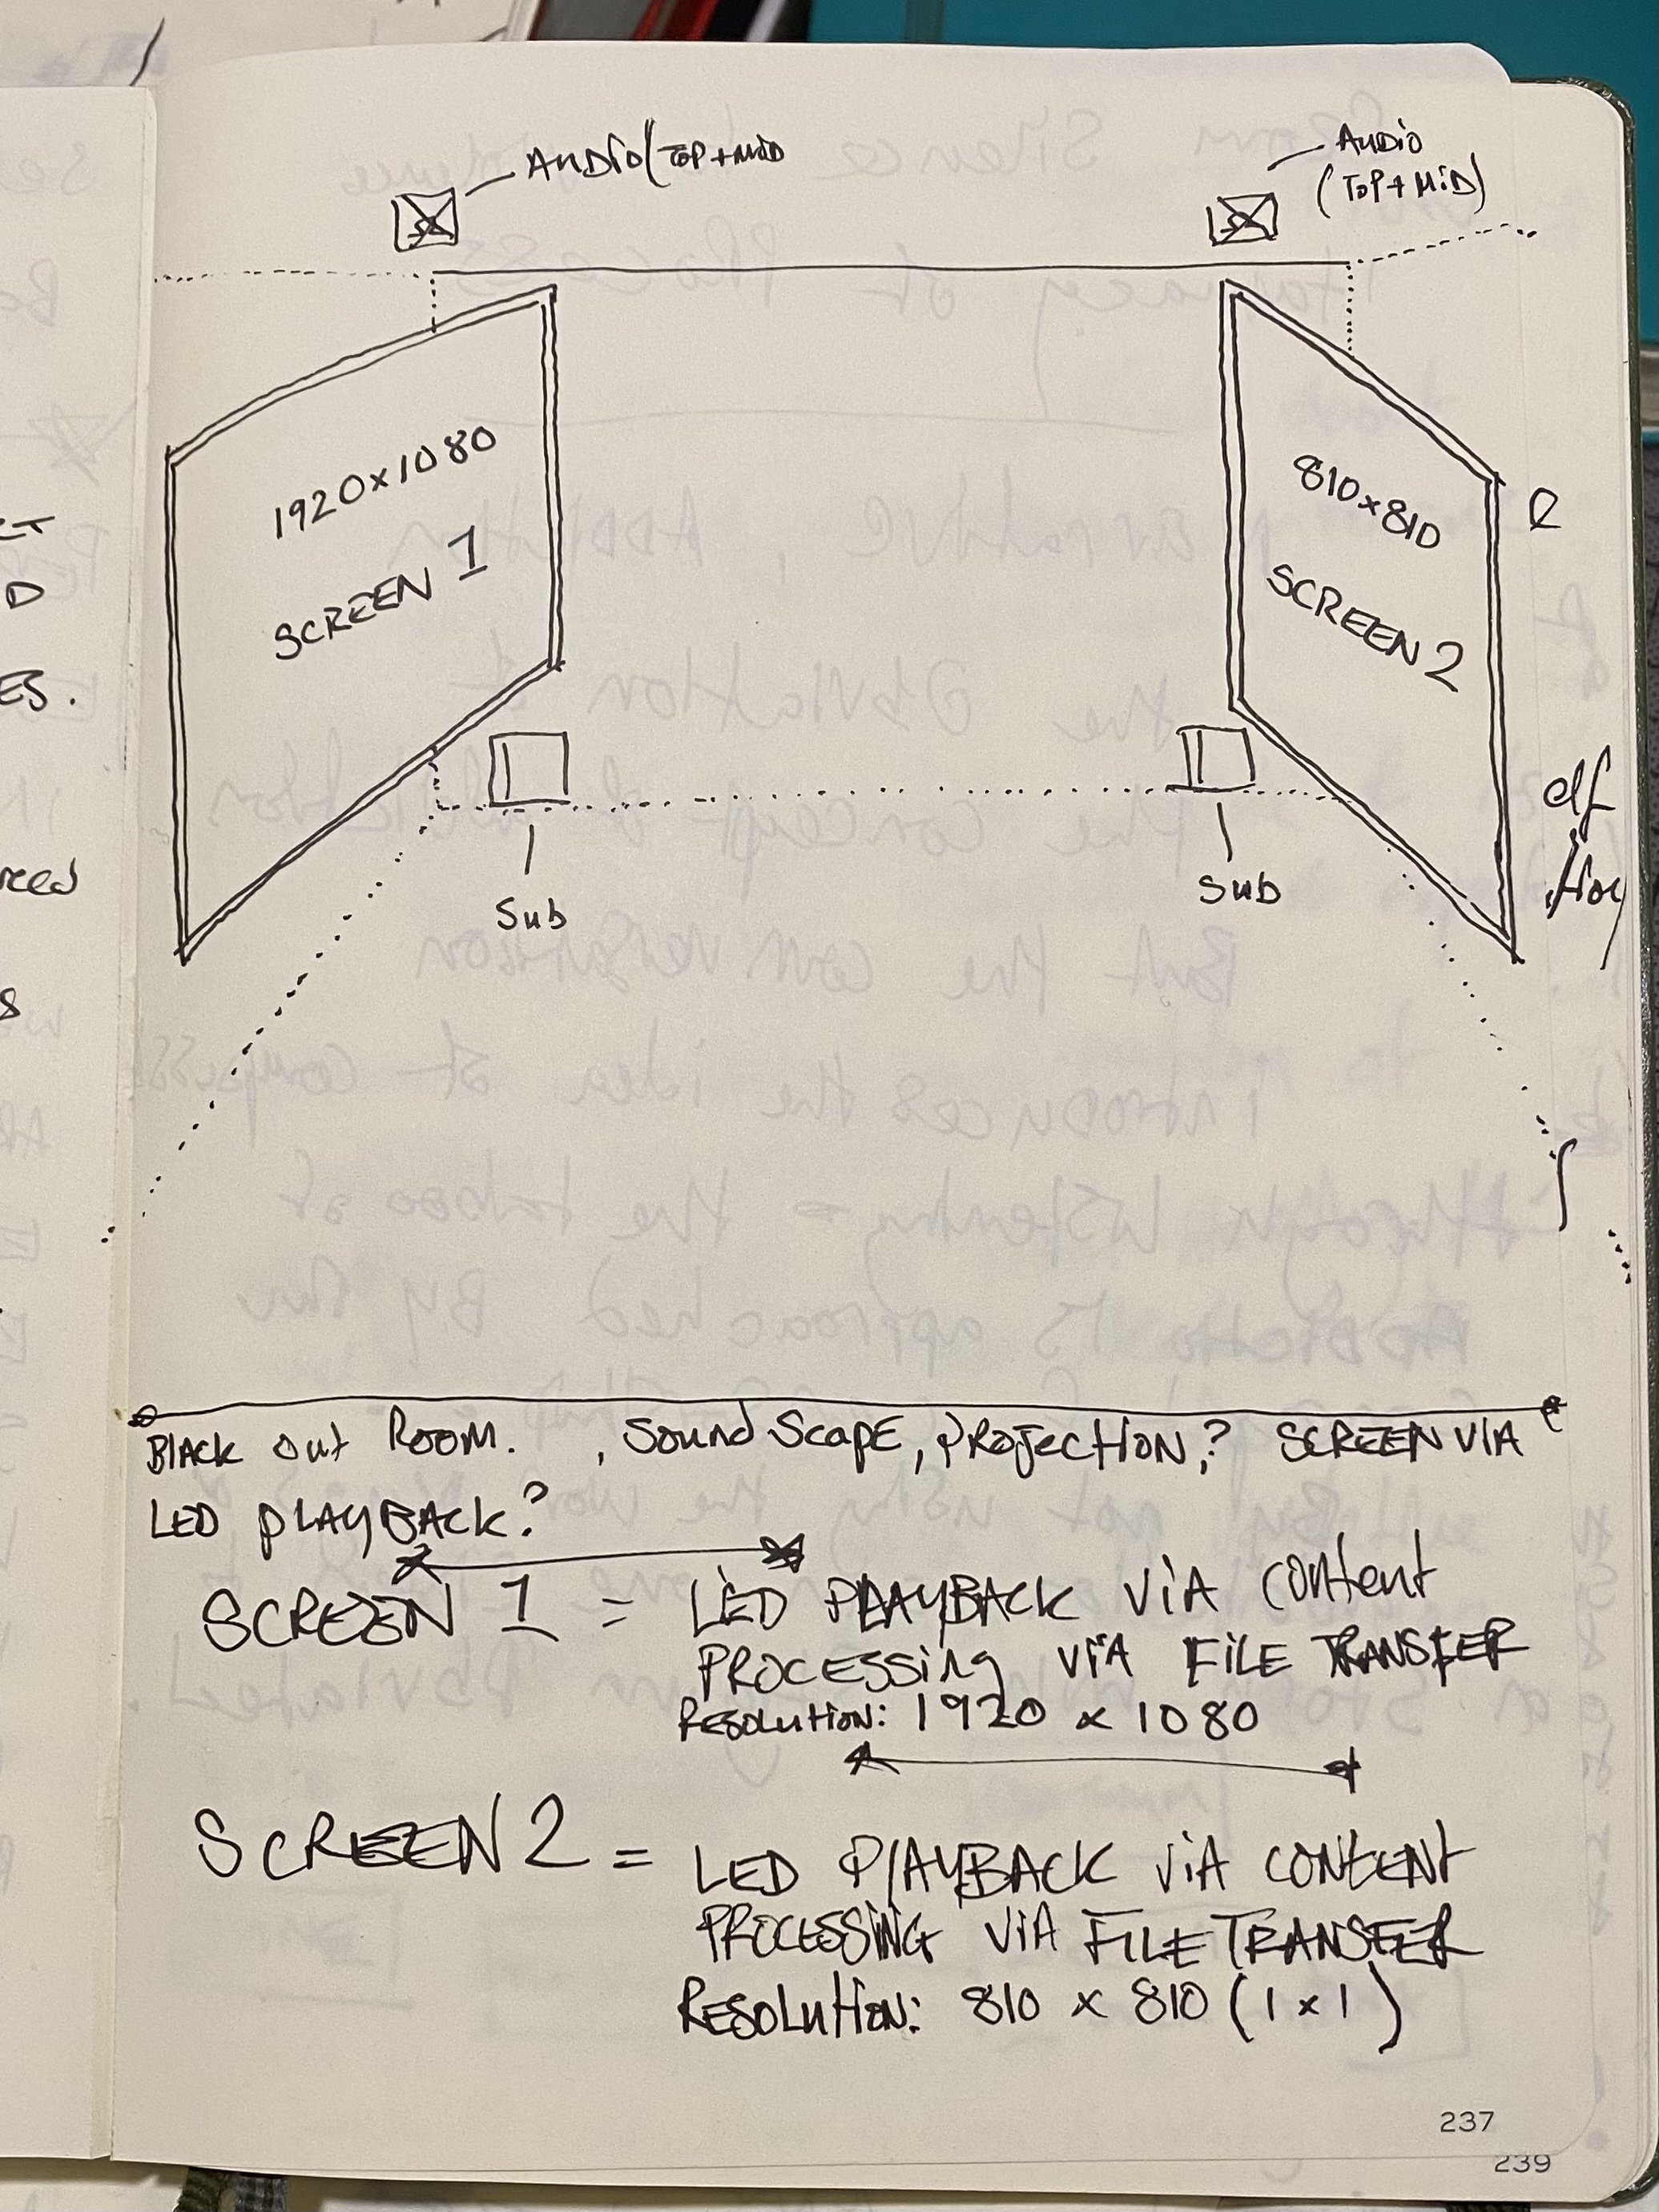 AUDIO (TOP + MID
AUDIO
(TOP + MID)
1920x1080
SCREEN 1
810x810
SCREEN 2
Sub
Sub
BLACK OUT ROOM. , Sound ScapE, PROJECTION,? SCREEN VIA
LED PLAYBACK?
SCREEN 1 = LED PLAYBACK VIA CONTENT
PROCESSING VIA FILE TRANSFER
RESOLUTION: 1920 x 1080
SCREEN 2 = LED PLAYBACK VIA CONTENT
PROCESSING VIA FILE TRANSFER
RESOLUTION: 810 x 810 (1x1)
237
239